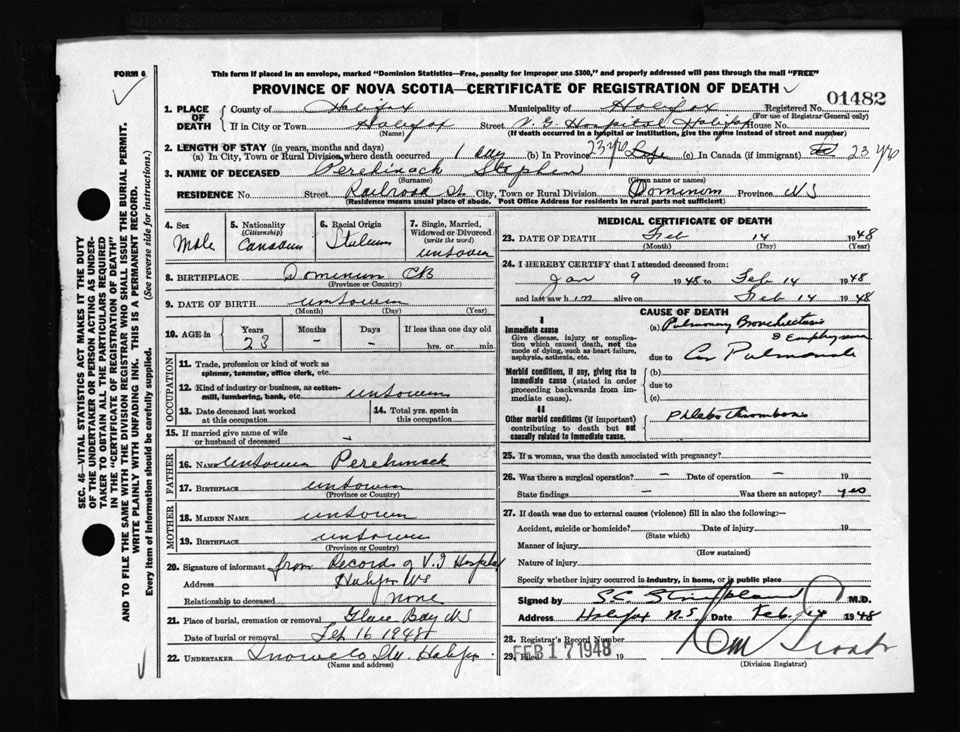 FORM 6
This form if placed in an envelope, marked "Dominion Statistics—Free, penalty for improper use $300," and properly addressed will pass through the mail "FREE"
PROVINCE OF NOVA SCOTIA—CERTIFICATE OF REGISTRATION OF DEATH
01482
1. PLACE OF DEATH
County of Halifax Municipality of Halifax Registered No.
(For use of Registrar General only)
If in City or Town Halifax Street V.G. Hospital Halifax House No.
(Name) (If death occurred in a hospital or institution, give the name instead of street and number)
2. LENGTH OF STAY (in years, months and days)
(a) In City, Town or Rural Division where death occurred 1 day (b) In Province 23 yrs Life (c) In Canada (if immigrant) 23 yrs
3. NAME OF DECEASED Stephen
(Surname) (Given name or names)
RESIDENCE No. Street Railroad St. City, Town or Rural Division Dominion Province NS
(Residence means usual place of abode. Post Office Address for residents in rural parts not sufficient)
4. Sex
Male
5. Nationality
(Citizenship)
Canadian
6. Racial Origin
7. Single, Married, Widowed or Divorced
(write the word)
8. BIRTHPLACE Dominion CB
(Province or Country)
9. DATE OF BIRTH
(Month) (Day) (Year)
10. AGE in
Years Months Days If less than one day old
23 – – hrs. or min.
OCCUPATION
11. Trade, profession or kind of work as spinner, teamster, office clerk, etc.
12. Kind of industry or business, as cotton-mill, lumbering, bank, etc.
13. Date deceased last worked at this occupation
14. Total yrs. spent in this occupation
15. If married give name of wife or husband of deceased –
FATHER
16. NAME
17. BIRTHPLACE
(Province or Country)
MOTHER
18. MAIDEN NAME
19. BIRTHPLACE
(Province or Country)
20. Signature of informant from Records of V.G Hospital
Address Halifax NS
Relationship to deceased none
21. Place of burial, cremation or removal Glace Bay NS
Date of burial or removal Feb 16 1948
22. UNDERTAKER Halifax
(Name and address)
MEDICAL CERTIFICATE OF DEATH
23. DATE OF DEATH Feb 14 1948
(Month) (Day) (Year)
24. I HEREBY CERTIFY that I attended deceased from:
Jan 9 1948 to Feb 14 1948
and last saw him alive on Feb 14 1948
CAUSE OF DEATH
I
Immediate cause
Give disease, injury or complication which caused death, not the mode of dying, such as heart failure, asphyxia, asthenia, etc.
(a) Pulmonary Bronchiectasis & Emphysema
due to Cor Pulmonale
Morbid conditions, if any, giving rise to immediate cause (stated in order proceeding backwards from immediate cause).
(b)
due to
(c)
II
Other morbid conditions (if important) contributing to death but not causally related to immediate cause.
Phlebothrombosis
25. If a woman, was the death associated with pregnancy?
26. Was there a surgical operation? – Date of operation – 19
State findings – Was there an autopsy? yes
27. If death was due to external causes (violence) fill in also the following:—
Accident, suicide or homicide? Date of injury 19
(State which)
Manner of injury
(How sustained)
Nature of injury
Specify whether injury occurred in industry, in home, or is public place
Signed by S.C. M.D.
Address Halifax N.S. Date Feb. 14 1948
28. Registrar's Record Number
29. Filed FEB 17 1948 19
(Division Registrar)
SEC. 46—VITAL STATISTICS ACT MAKES IT THE DUTY
OF THE UNDERTAKER OR PERSON ACTING AS UNDER-
TAKER TO OBTAIN ALL THE PARTICULARS REQUIRED
IN THE "CERTIFICATE OF REGISTRATION OF DEATH"
AND TO FILE THE SAME WITH THE DIVISION REGISTRAR WHO SHALL ISSUE THE BURIAL PERMIT.
WRITE PLAINLY WITH UNFADING INK. THIS IS A PERMANENT RECORD.
Every item of information should be carefully supplied. (See reverse side for instructions.)